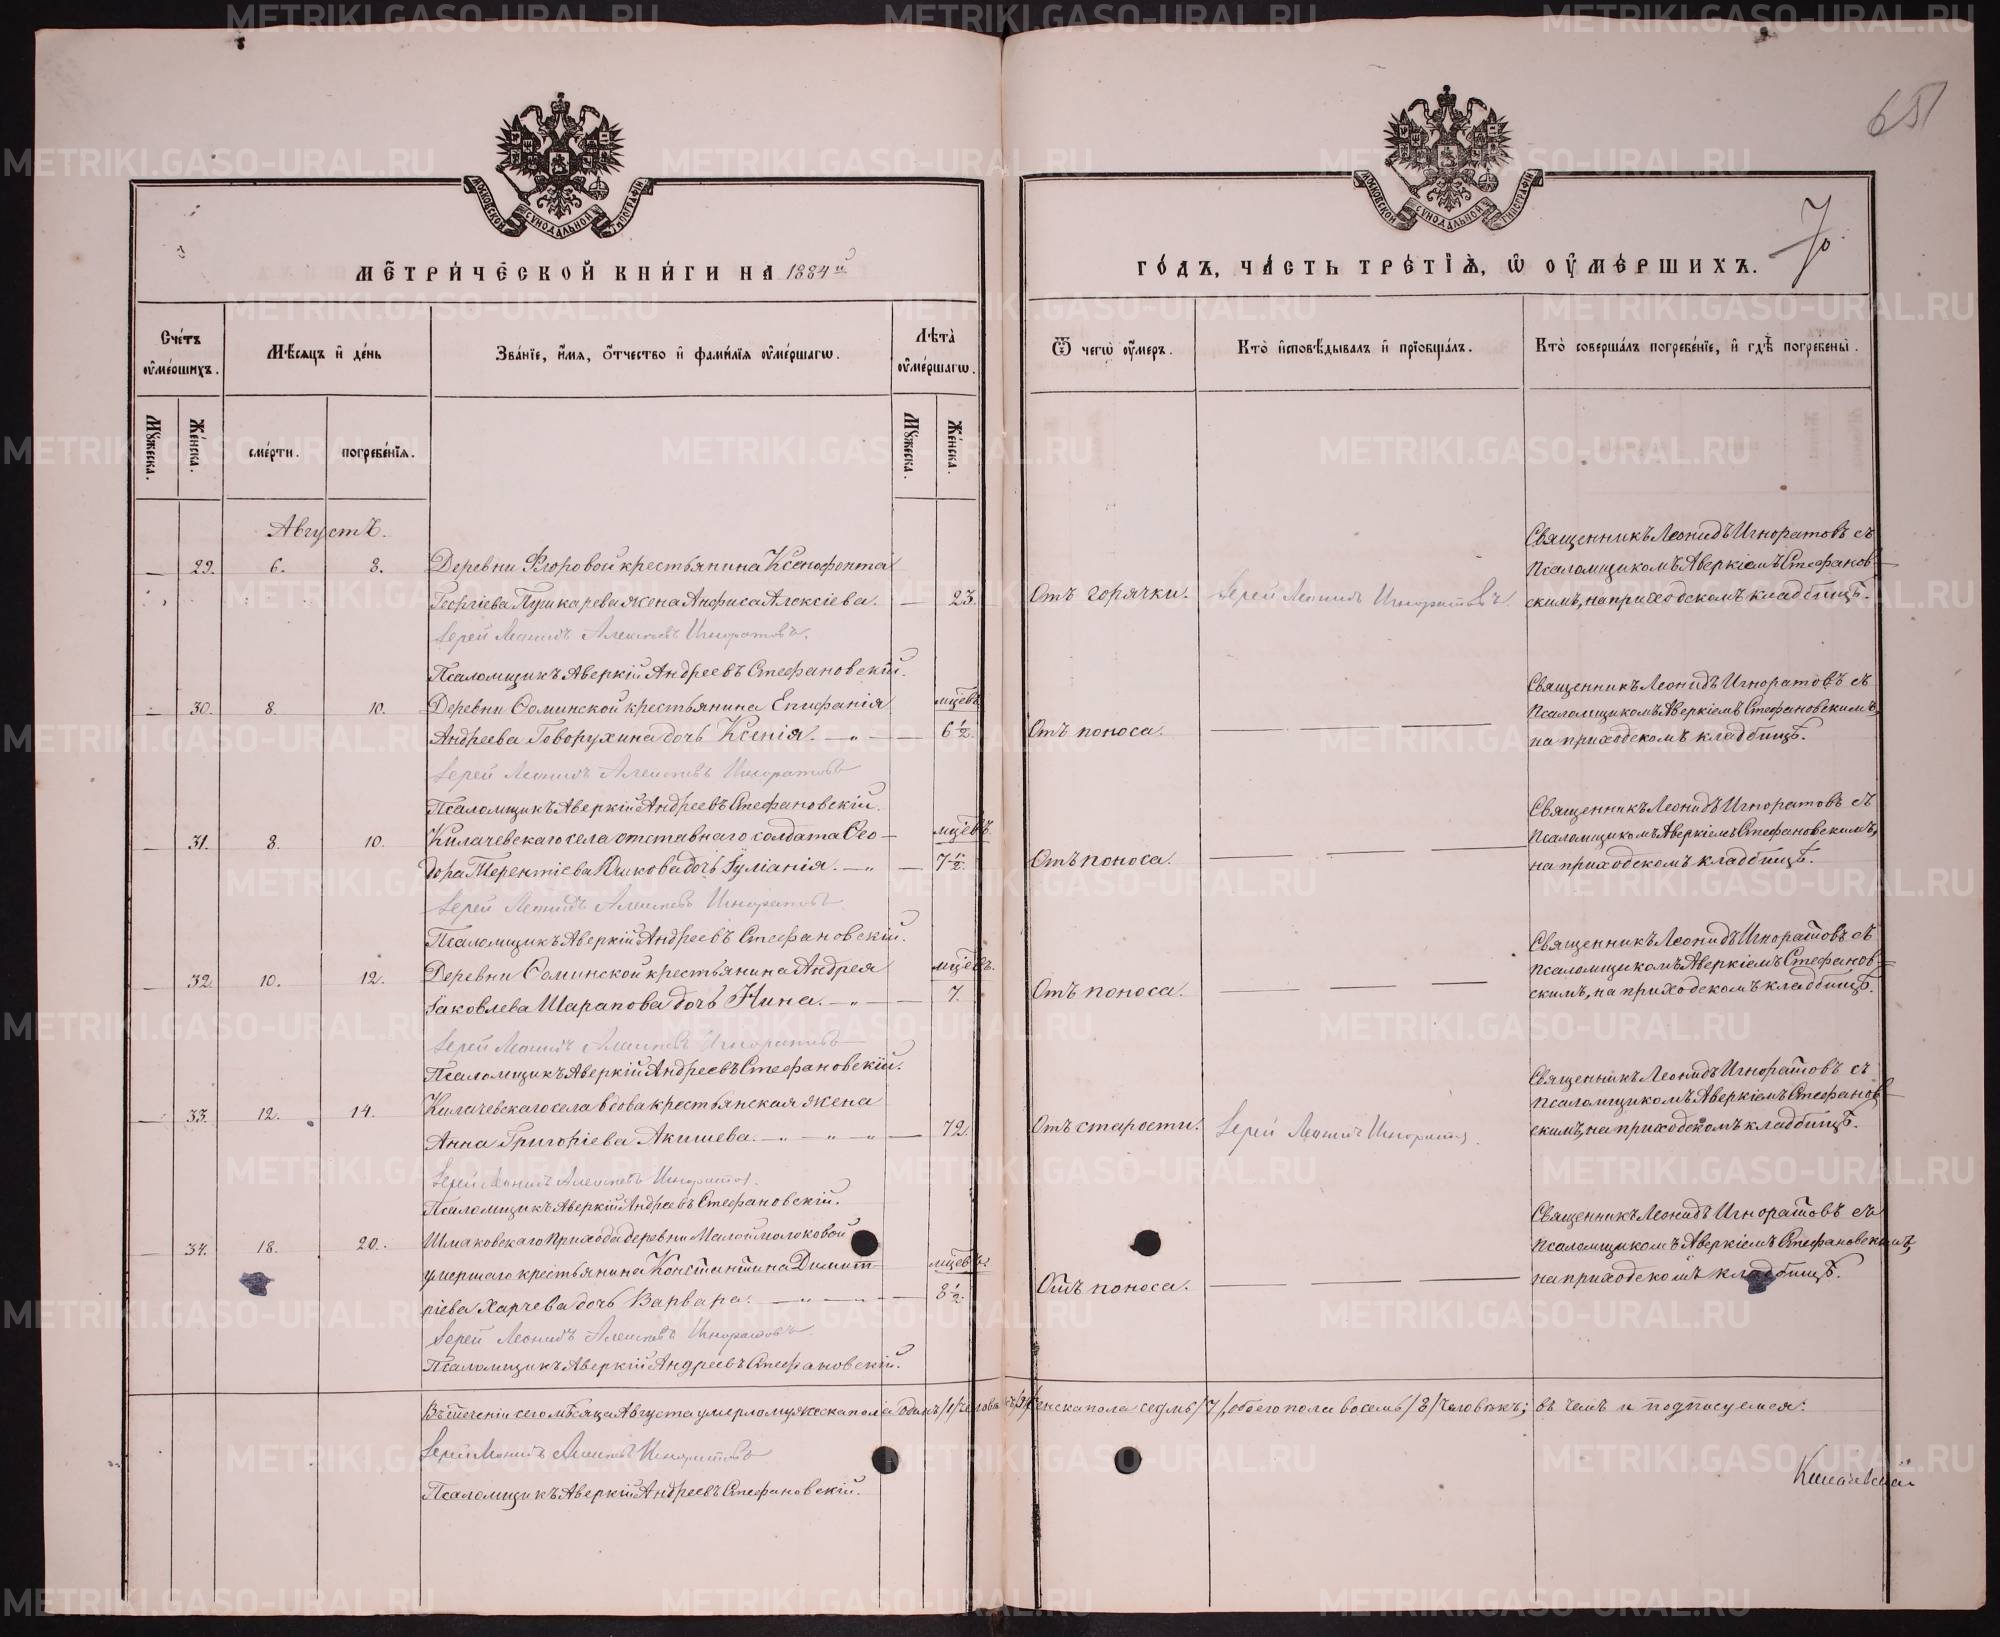 МОСКОВСКОЙ СУНОДАЛЬНОЙ ТИПОГРАФІИ
МЕТРИЧЕСКОЙ КНИГИ НА 1884й
Счетъ оумершихъ.
Мѣсяцъ и день
Званїе, имя, отчество и фамилїя оумершагѡ.
Лѣта оумершагѡ.
Мужеска.
Женска.
смерти.
погребенїя.
Мужеска.
Женска.
Августъ.
— 29. 6. 8. Деревни Ѳгоровой крестьянина Ксенофонта
Георгіева Пушкарева жена Анфиса Алексіева. — 23.
Іерей Леонидъ Алексіевъ Игноратовъ.
Псаломщикъ Аверкій Андреевъ Стефановскій.
— 30. 8. 10. Деревни Соминской крестьянина Епифанія мцевъ
Андреева Говорухина дочь Ксенія. — „ — 6 1/2.
Іерей Леонидъ Алексіевъ Игноратовъ
Псаломщикъ Аверкій Андреевъ Стефановскій.
— 31. 8. 10. Килачевскаго села отставнаго солдата Ѳео— мцевъ.
дора Терентіева дочь Іуліанія. — „ — 7 1/2.
Іерей Леонидъ Алексіевъ Игноратовъ
Псаломщикъ Аверкій Андреевъ Стефановскій.
— 32. 10. 12. Деревни Соминской крестьянина Андрея мцевъ.
Іаковлева Шарапова дочь Нина. — „ — 7.
Іерей Леонидъ Алексіевъ Игноратовъ
Псаломщикъ Аверкій Андреевъ Стефановскій.
— 33. 12. 14. Килачевскаго села вдова крестьянская жена
Анна Григоріева Акишева. — „ — „ — „ — 72.
Іерей Леонидъ Алексіевъ Игноратовъ.
Псаломщикъ Аверкій Андреевъ Стефановскій.
— 34. 18. 20. Шмаковскаго прихода деревни Малой Молоковой
умершаго крестьянина Константина Димит— мцевъ
ріева Харчева дочь Варвара. — „ — „ — 8 1/2.
Іерей Леонидъ Алексіевъ Игноратовъ.
Псаломщикъ Аверкій Андреевъ Стефановскій.
Въ теченіи сего мѣсяца Августа умерло мужеска пола одинъ /1/ человѣкъ, женска пола седмь /7/, обоего пола восемь /8/ человѣкъ; въ чемъ и подписуемся:
Іерей Леонидъ Алексіевъ Игноратовъ
Псаломщикъ Аверкій Андреевъ Стефановскій.
65
МОСКОВСКОЙ СУНОДАЛЬНОЙ ТИПОГРАФІИ
70.
ГОДЪ, ЧАСТЬ ТРЕТІЯ, Ѡ ОУМЕРШИХЪ.
Ѿ чегѡ оумеръ.
Кто исповѣдывалъ и прїобщалъ.
Кто совершалъ погребенїе, и гдѣ погребены.
Священникъ Леонидъ Игноратовъ съ
Псаломщикомъ Аверкіемъ Стефанов—
Отъ горячки. Іерей Леонидъ Игноратовъ. скимъ, на приходскомъ кладбищѣ.
Священникъ Леонидъ Игноратовъ съ
Псаломщикомъ Аверкіемъ Стефановскимъ,
Отъ поноса. — — — на приходскомъ кладбищѣ.
Священникъ Леонидъ Игноратовъ съ
Псаломщикомъ Аверкіемъ Стефановскимъ,
Отъ поноса. — — — на приходскомъ кладбищѣ.
Священникъ Леонидъ Игноратовъ съ
Псаломщикомъ Аверкіемъ Стефанов—
Отъ поноса. — — — скимъ, на приходскомъ кладбищѣ.
Священникъ Леонидъ Игноратовъ съ
Псаломщикомъ Аверкіемъ Стефанов—
Отъ старости. Іерей Леонидъ Игноратовъ. скимъ, на приходскомъ кладбищѣ.
Священникъ Леонидъ Игноратовъ съ
Псаломщикомъ Аверкіемъ Стефановскимъ,
Отъ поноса. — — — на приходскомъ кладбищѣ.
METRIKI.GASO-URAL.RU